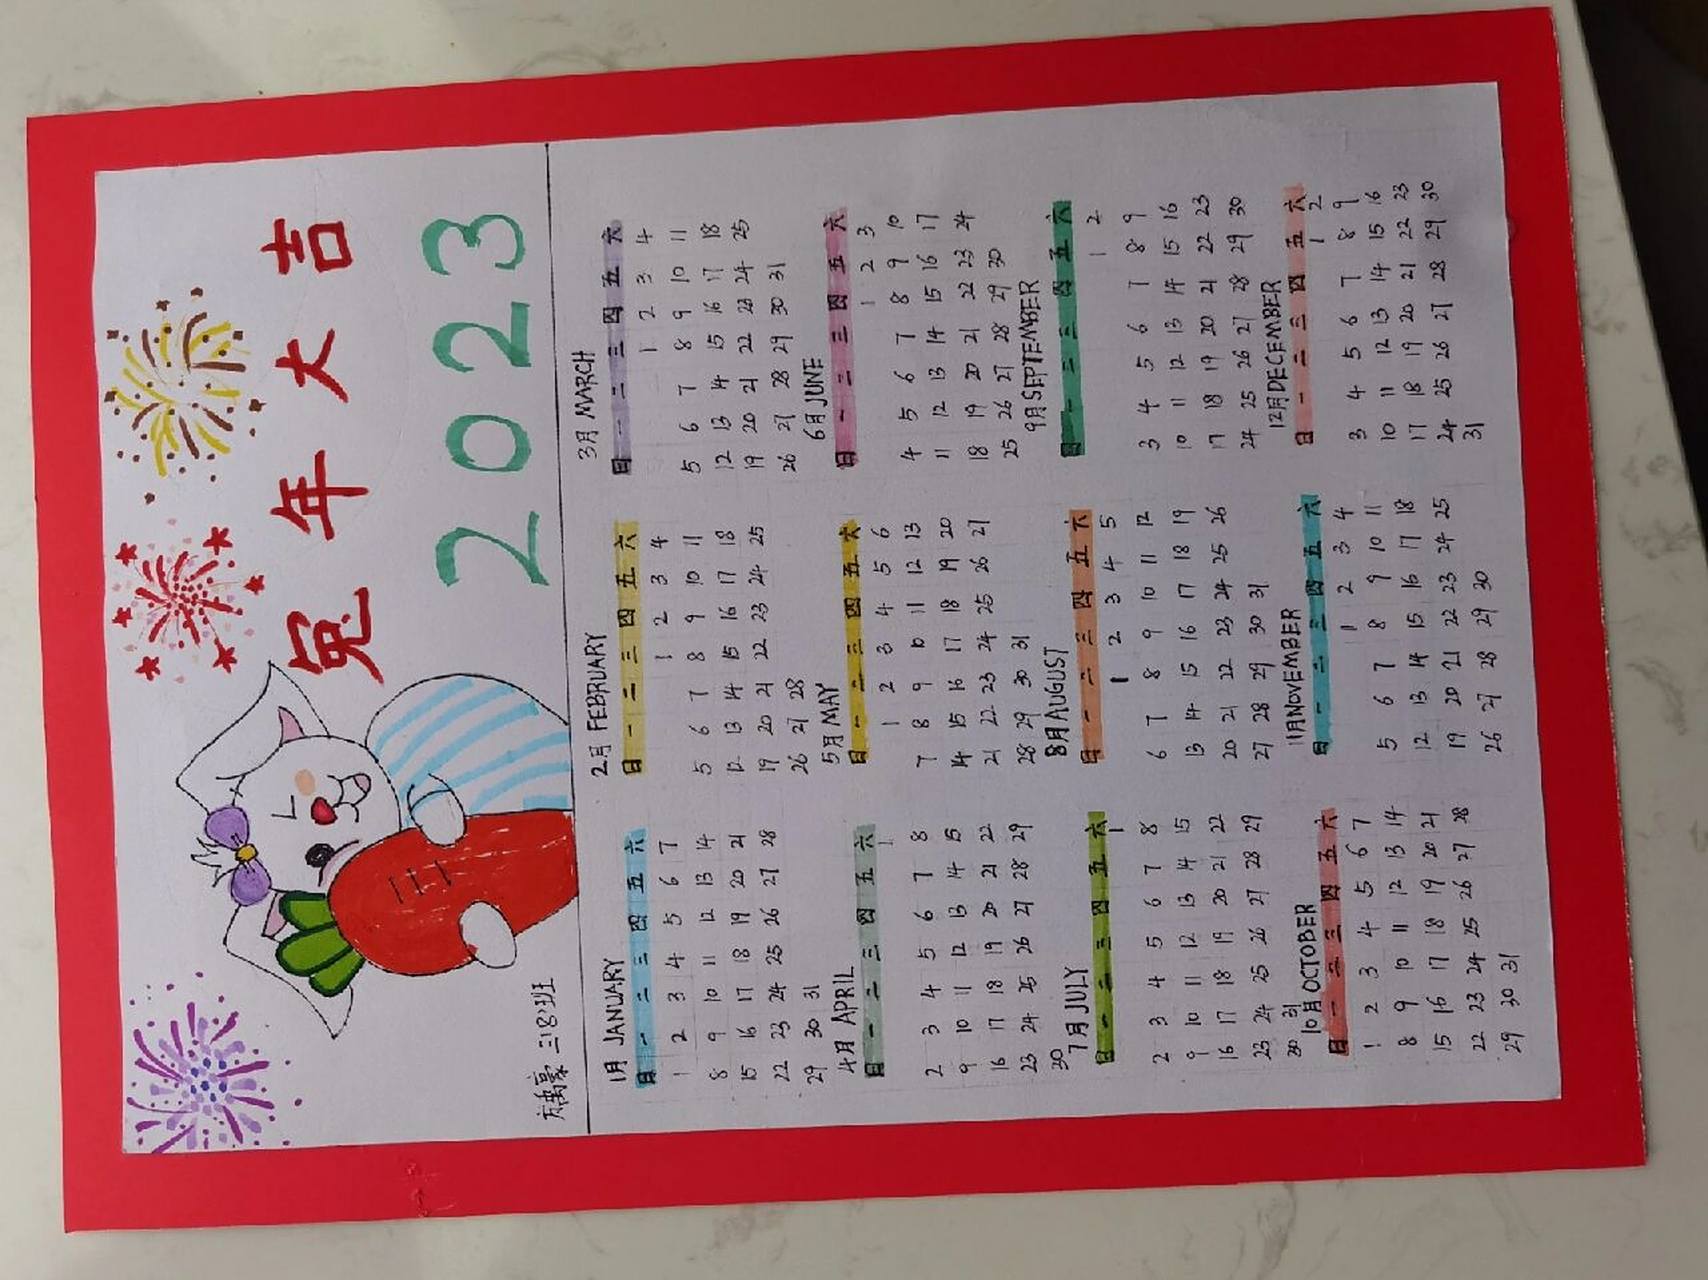 兔年大吉
2023
方禹豪 三(8)班
1月 JANUARY
日 一 二 三 四 五 六
1 2 3 4 5 6 7
8 9 10 11 12 13 14
15 16 17 18 19 20 21
22 23 24 25 26 27 28
29 30 31
2月 FEBRUARY
日 一 二 三 四 五 六
1 2 3 4
5 6 7 8 9 10 11
12 13 14 15 16 17 18
19 20 21 22 23 24 25
26 27 28
3月 MARCH
日 一 二 三 四 五 六
1 2 3 4
5 6 7 8 9 10 11
12 13 14 15 16 17 18
19 20 21 22 23 24 25
26 27 28 29 30 31
4月 APRIL
日 一 二 三 四 五 六
1
2 3 4 5 6 7 8
9 10 11 12 13 14 15
16 17 18 19 20 21 22
23 24 25 26 27 28 29
30
5月 MAY
日 一 二 三 四 五 六
1 2 3 4 5 6
7 8 9 10 11 12 13
14 15 16 17 18 19 20
21 22 23 24 25 26 27
28 29 30 31
6月 JUNE
日 一 二 三 四 五 六
1 2 3
4 5 6 7 8 9 10
11 12 13 14 15 16 17
18 19 20 21 22 23 24
25 26 27 28 29 30
7月 JULY
日 一 二 三 四 五 六
1
2 3 4 5 6 7 8
9 10 11 12 13 14 15
16 17 18 19 20 21 22
23 24 25 26 27 28 29
30 31
8月 AUGUST
日 一 二 三 四 五 六
1 2 3 4 5
6 7 8 9 10 11 12
13 14 15 16 17 18 19
20 21 22 23 24 25 26
27 28 29 30 31
9月 SEPTEMBER
日 一 二 三 四 五 六
1 2
3 4 5 6 7 8 9
10 11 12 13 14 15 16
17 18 19 20 21 22 23
24 25 26 27 28 29 30
10月 OCTOBER
日 一 二 三 四 五 六
1 2 3 4 5 6 7
8 9 10 11 12 13 14
15 16 17 18 19 20 21
22 23 24 25 26 27 28
29 30 31
11月 NOVEMBER
日 一 二 三 四 五 六
1 2 3 4
5 6 7 8 9 10 11
12 13 14 15 16 17 18
19 20 21 22 23 24 25
26 27 28 29 30
12月 DECEMBER
日 一 二 三 四 五 六
1 2
3 4 5 6 7 8 9
10 11 12 13 14 15 16
17 18 19 20 21 22 23
24 25 26 27 28 29 30
31